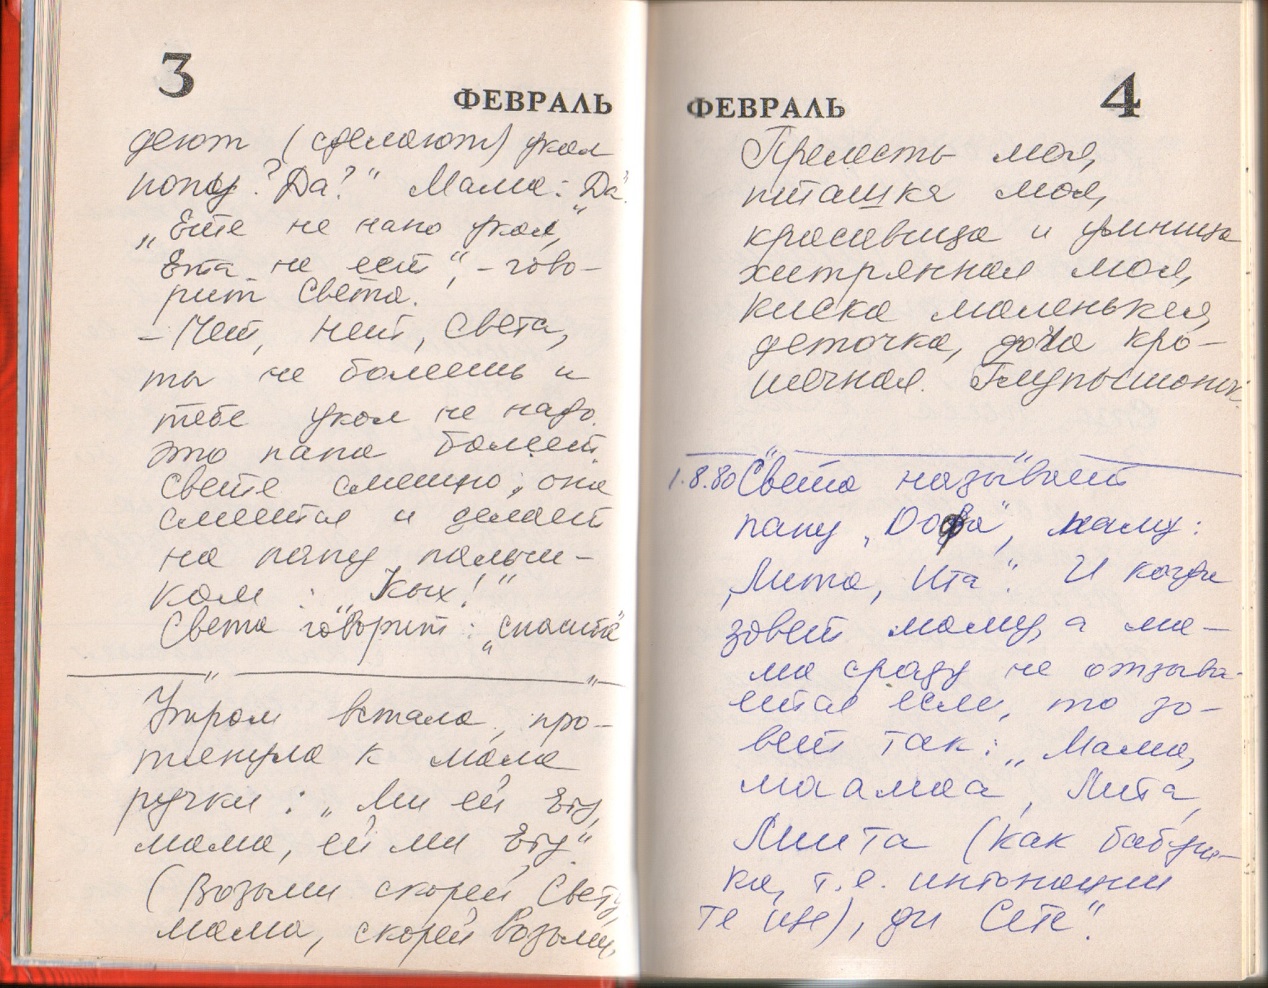 3
ФЕВРАЛЬ
деют (сделают) укол
попу? Да?" Мама: "Да".
"Ете не нано укол,"
Ета не еет", - гово-
рит Света.
- Нет, нет, Света,
ты не болеешь и
тебе укол не надо.
Это папа болеет.
Свете смешно, она
смеётся и делает
на папу пальчи-
ком: "Кых!"
Света говорит: "спасиба"
Утром встала, про-
тянула к маме
ручки: "Ми ей Ету,
мама, ей ми Ету"
(Возьми скорей Свету,
мама, скорей возьми,
ФЕВРАЛЬ
4
Прелесть моя,
пташка моя,
красавица и умница
хитрянная моя,
киска маленькая,
деточка, доча кро-
шечная. Глупышонок.
1.8.80 Света называет
папу, маму:
"Лита, Ита". И когда
зовет маму, а ма-
ма сразу не отзыва-
ется если, то зо-
вет так: "Мама,
маамаа, Лита,
Лиита (как бабуш-
ка, т.е. интонации
те же), ди Сете".